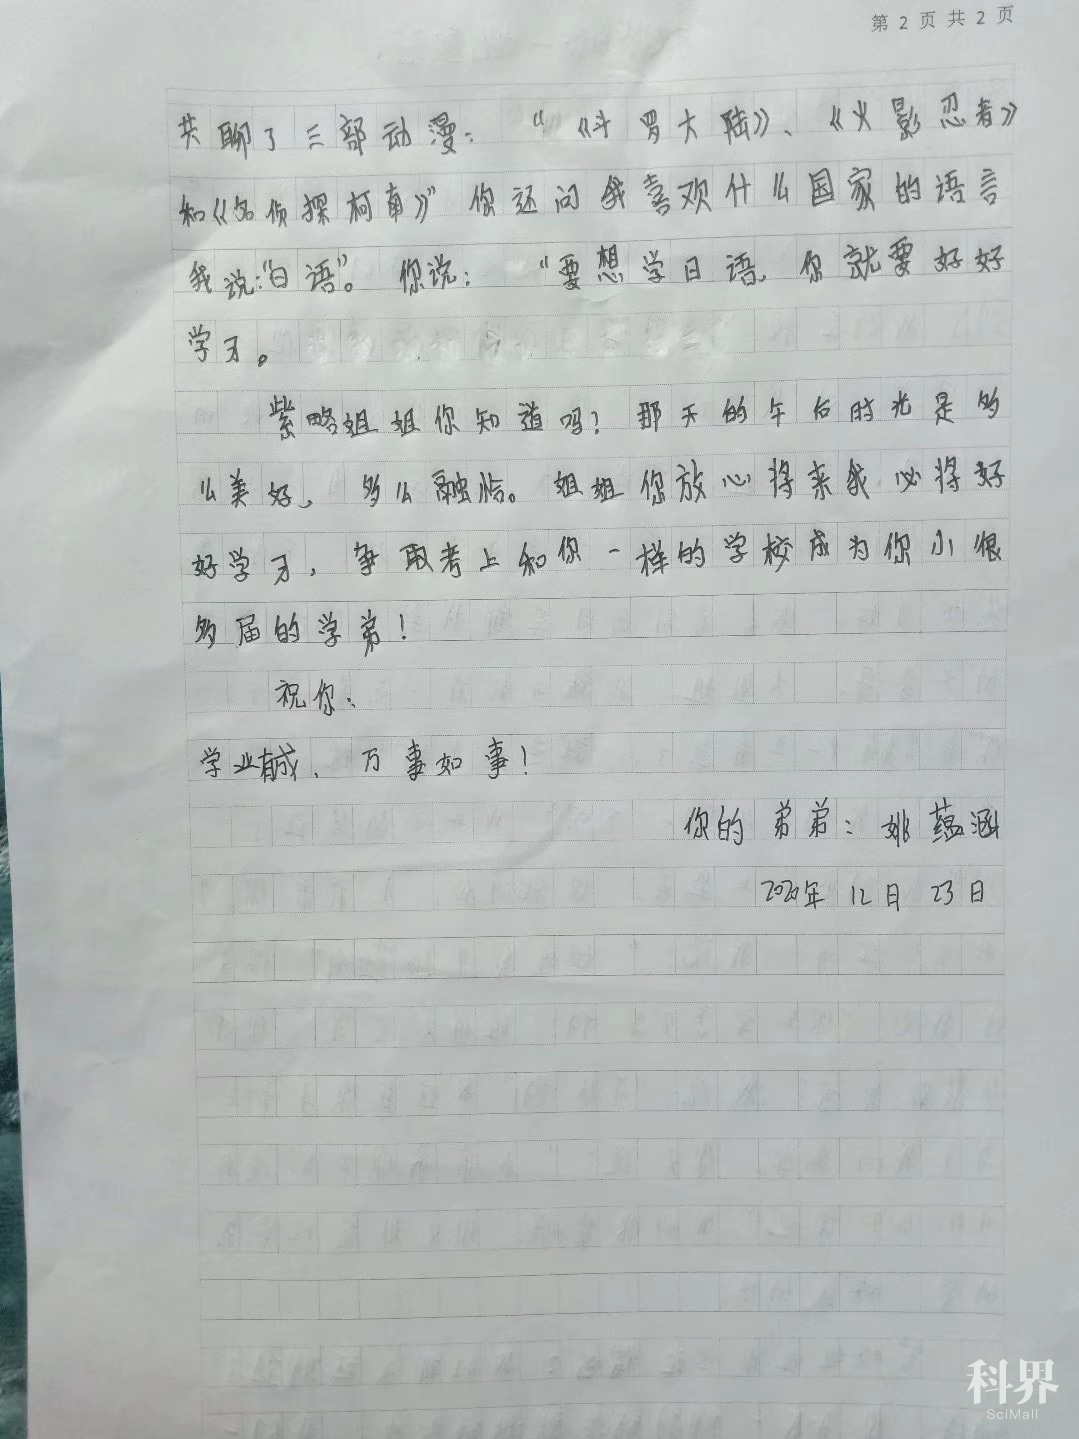 第 2 页 共 2 页
共聊了三部动漫：“《斗罗大陆》、《火影忍者》
和《名侦探柯南》”你还问我喜欢什么国家的语言
我说：“日语”。你说：“要想学日语，你就要好好
学习。
紫略姐姐你知道吗？那天的午后时光是多
么美好，多么融洽。姐姐你放心将来我必将好
好学习，争取考上和你一样的学校成为你小很
多届的学弟！
祝你：
学业有成，万事如事！
你的弟弟：姚蕴涵
2020年12月23日
科界
SciMall